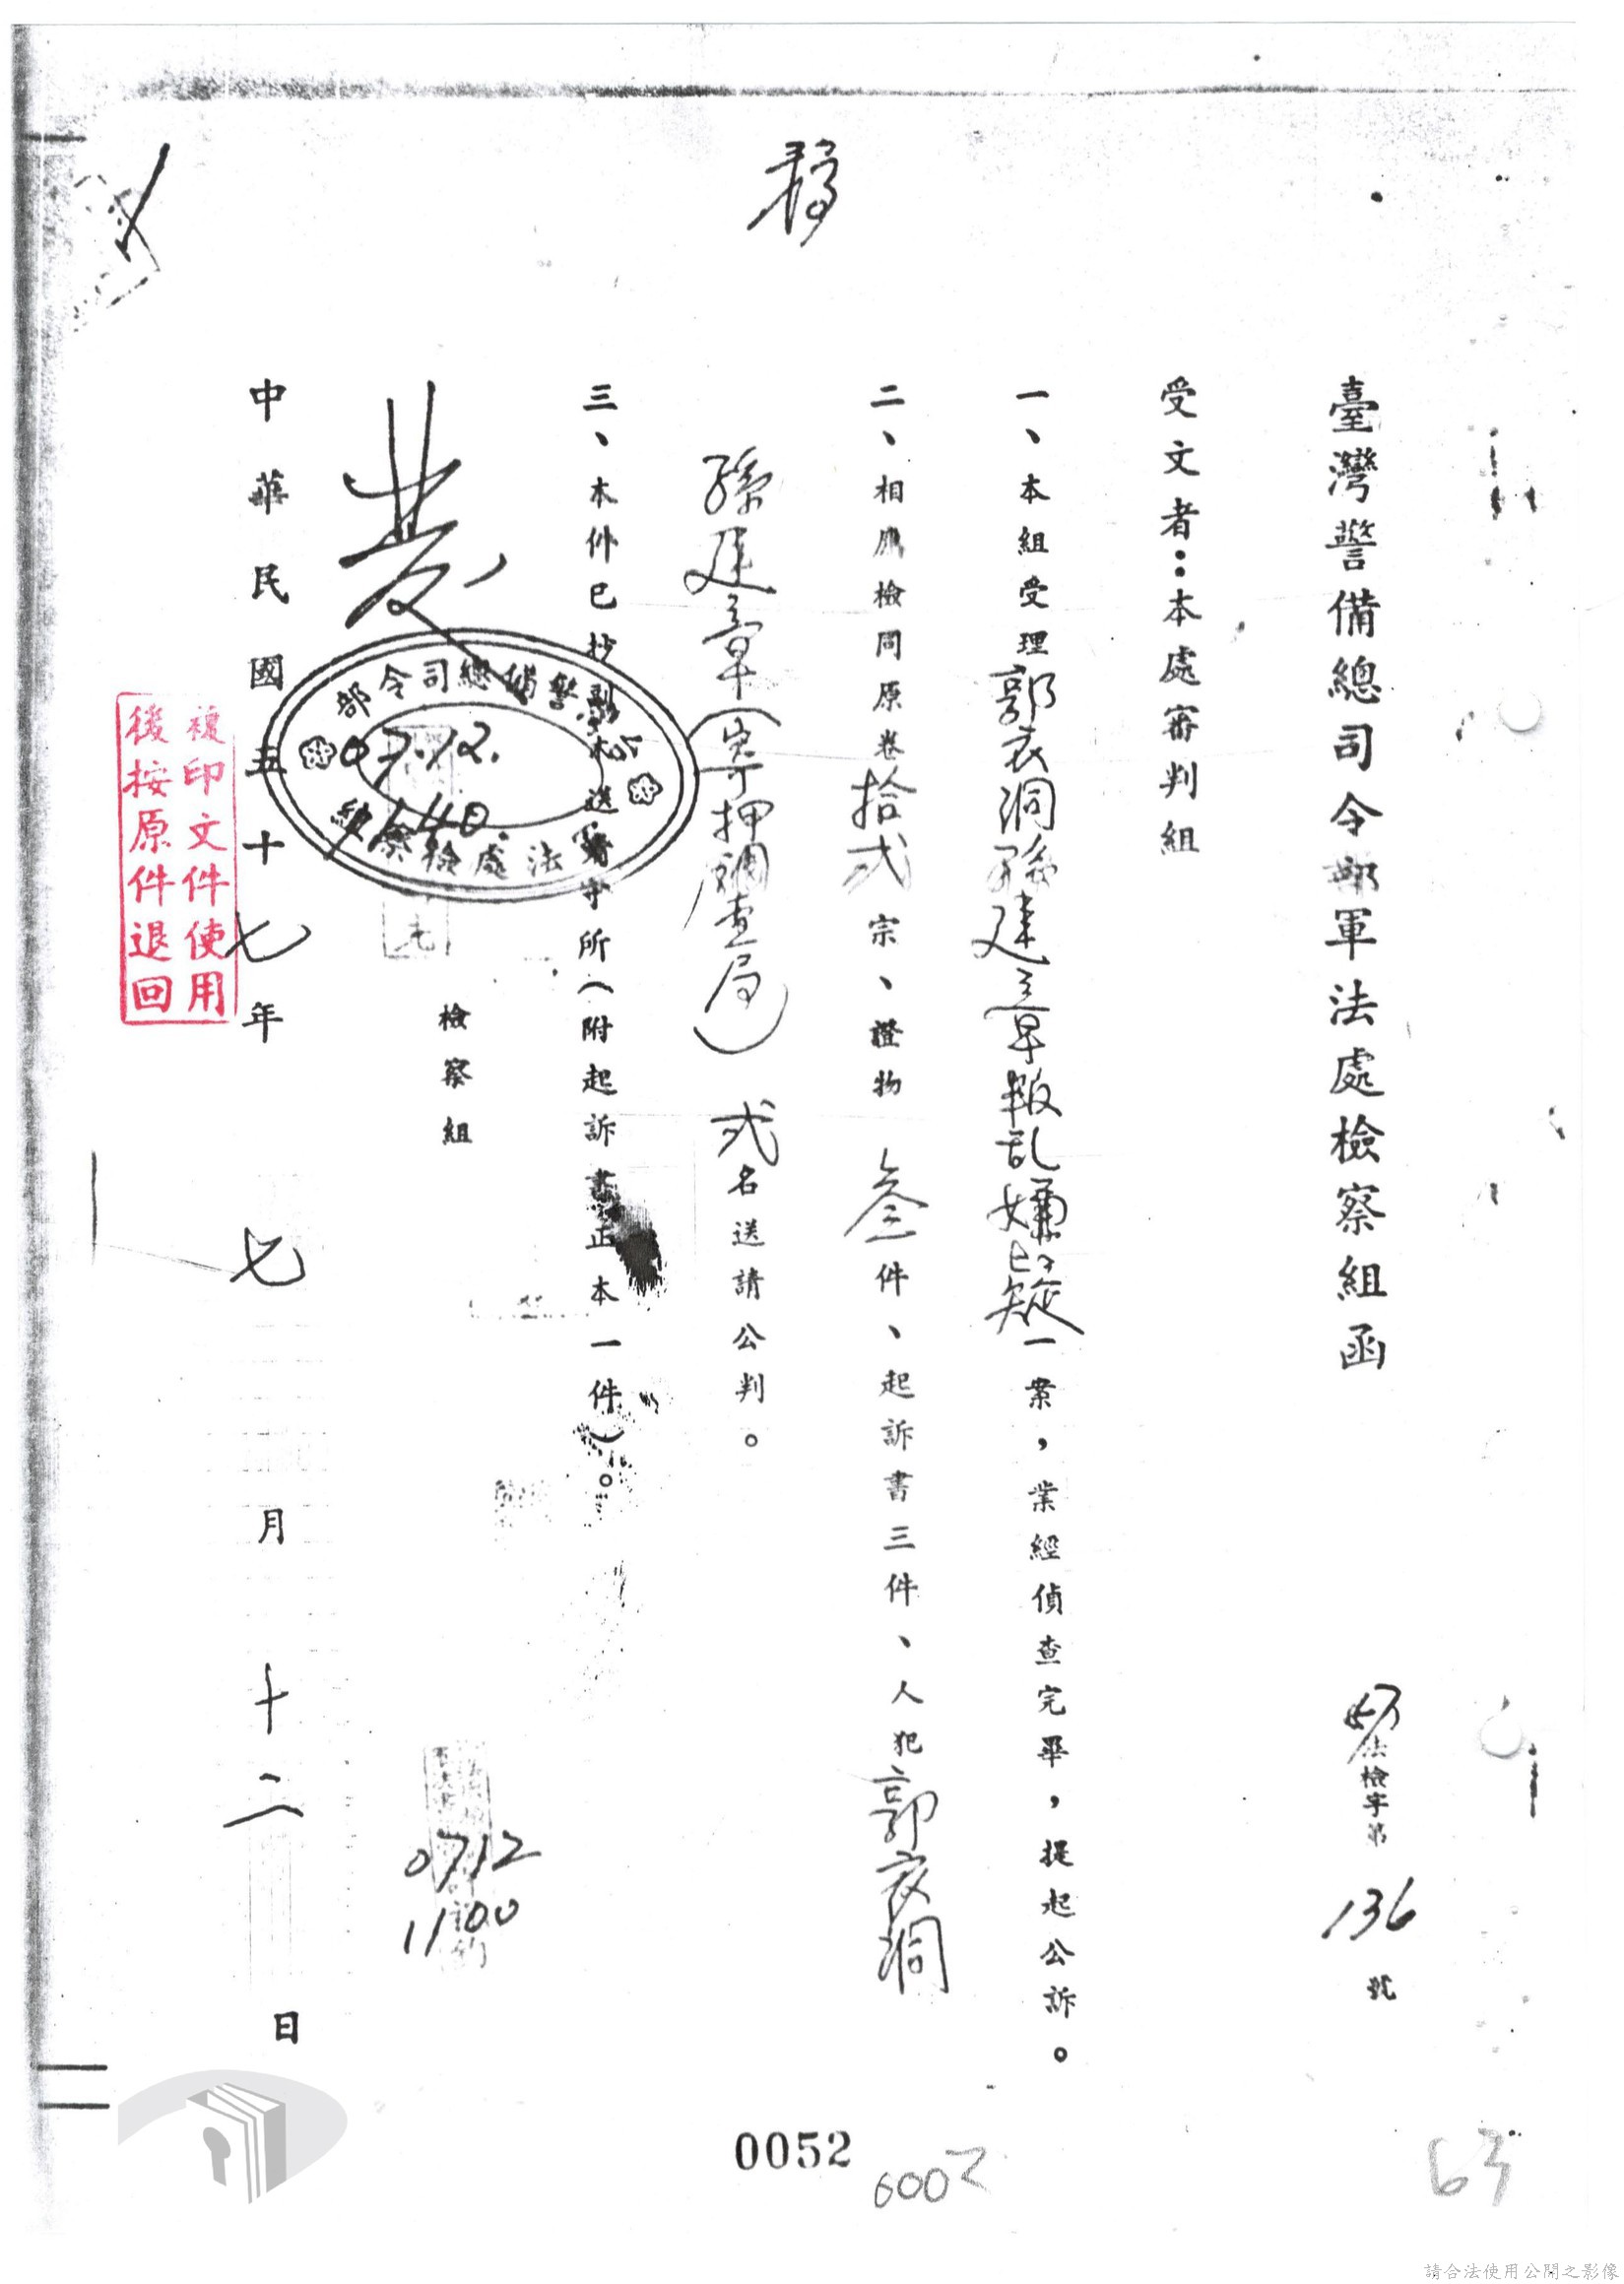 稿
臺灣警備總司令部軍法處檢察組函
57法檢字第136號
受文者：本處審判組
一、本組受理郭衣洞孫建章叛乱嫌疑一案，業經偵查完畢，提起公訴。
二、相應檢同原卷拾弍宗、證物叁件、起訴書三件、人犯郭衣洞
孫建章（寄押調查局）弍名送請公判。
三、本件已抄副本送看守所（附起訴書正本一件）。
檢察組
發
警備總司令部
軍法處檢察組
07.12.
中華民國五十七年七月十二日
0712
1100
複印文件使用
後按原件退回
0052
6002
63
請合法使用公開之影像